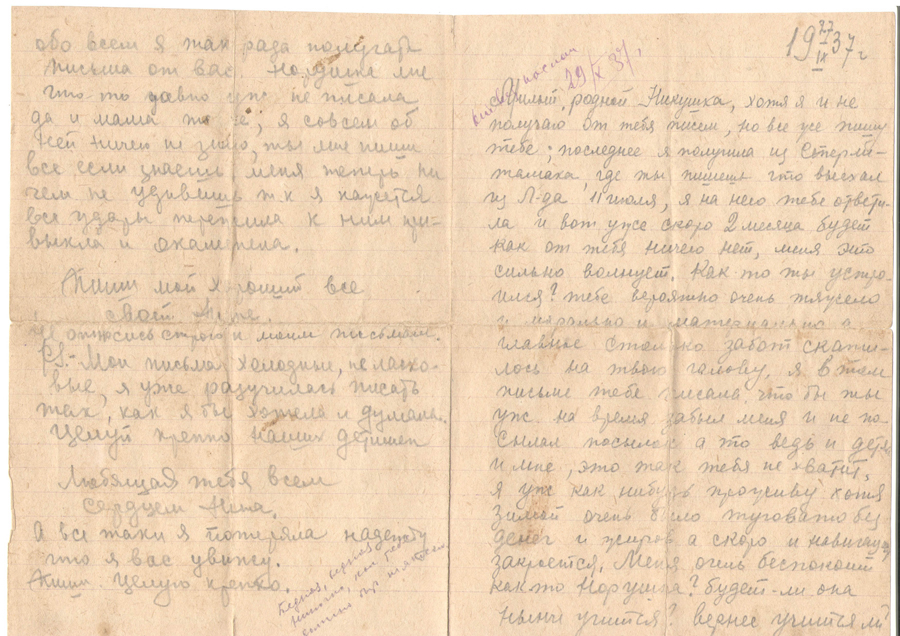 1937 г
27
IX
29/X 37 г.
Милый, родной Никушка, хотя я и не
получаю от тебя писем, но все же пишу
тебе; последнее я получила из Стерли-
тамака, где ты пишешь что выехал
из Л-да 11 июля, я на него тебе ответи-
ла и вот уже скоро 2 месяца будет
как от тебя ничего нет, меня это
сильно волнует. Как то ты устро-
ился? тебе вероятно очень тяжело
и морально и материально а
главное столько забот скати-
лось на твою галову, я в том
письме тебе писала, что бы ты
уж на время забыл меня и не по
сылал посылок а то ведь и дети
и мне, это так тебя не хватит,
я уж как нибудь проживу хотя
зимой очень было туговато без
денег и жиров а скоро и навигация
закроется. Меня очень беспокоит
как то Норушка? будет-ли она
нынче учится? вернее учится ли
обо всем я так рада получать
письма от вас. Нордише мне
что то давно уж не писала
да и мама то же, я совсем об
ней ничем не знаю, ты мне пиши
все если знаешь меня теперь ни
чем не удивишь т.к я кажется
все удары пережила к ним при-
выкла и окаменела.
Пиши мой хороший все
твоей Нине.
Не относись строго к моим письмам.
P.S.- Мои письма холодные, не ласко-
вые, я уже разучилась писать
так, как я бы хотела и думала.
Целуй крепко наших детишек
Любящая тебя всем
сердцем Нина.
А все таки я потеряла надежду
что я вас увижу.
Пиши. Целую крепко.
Бедная, бедная